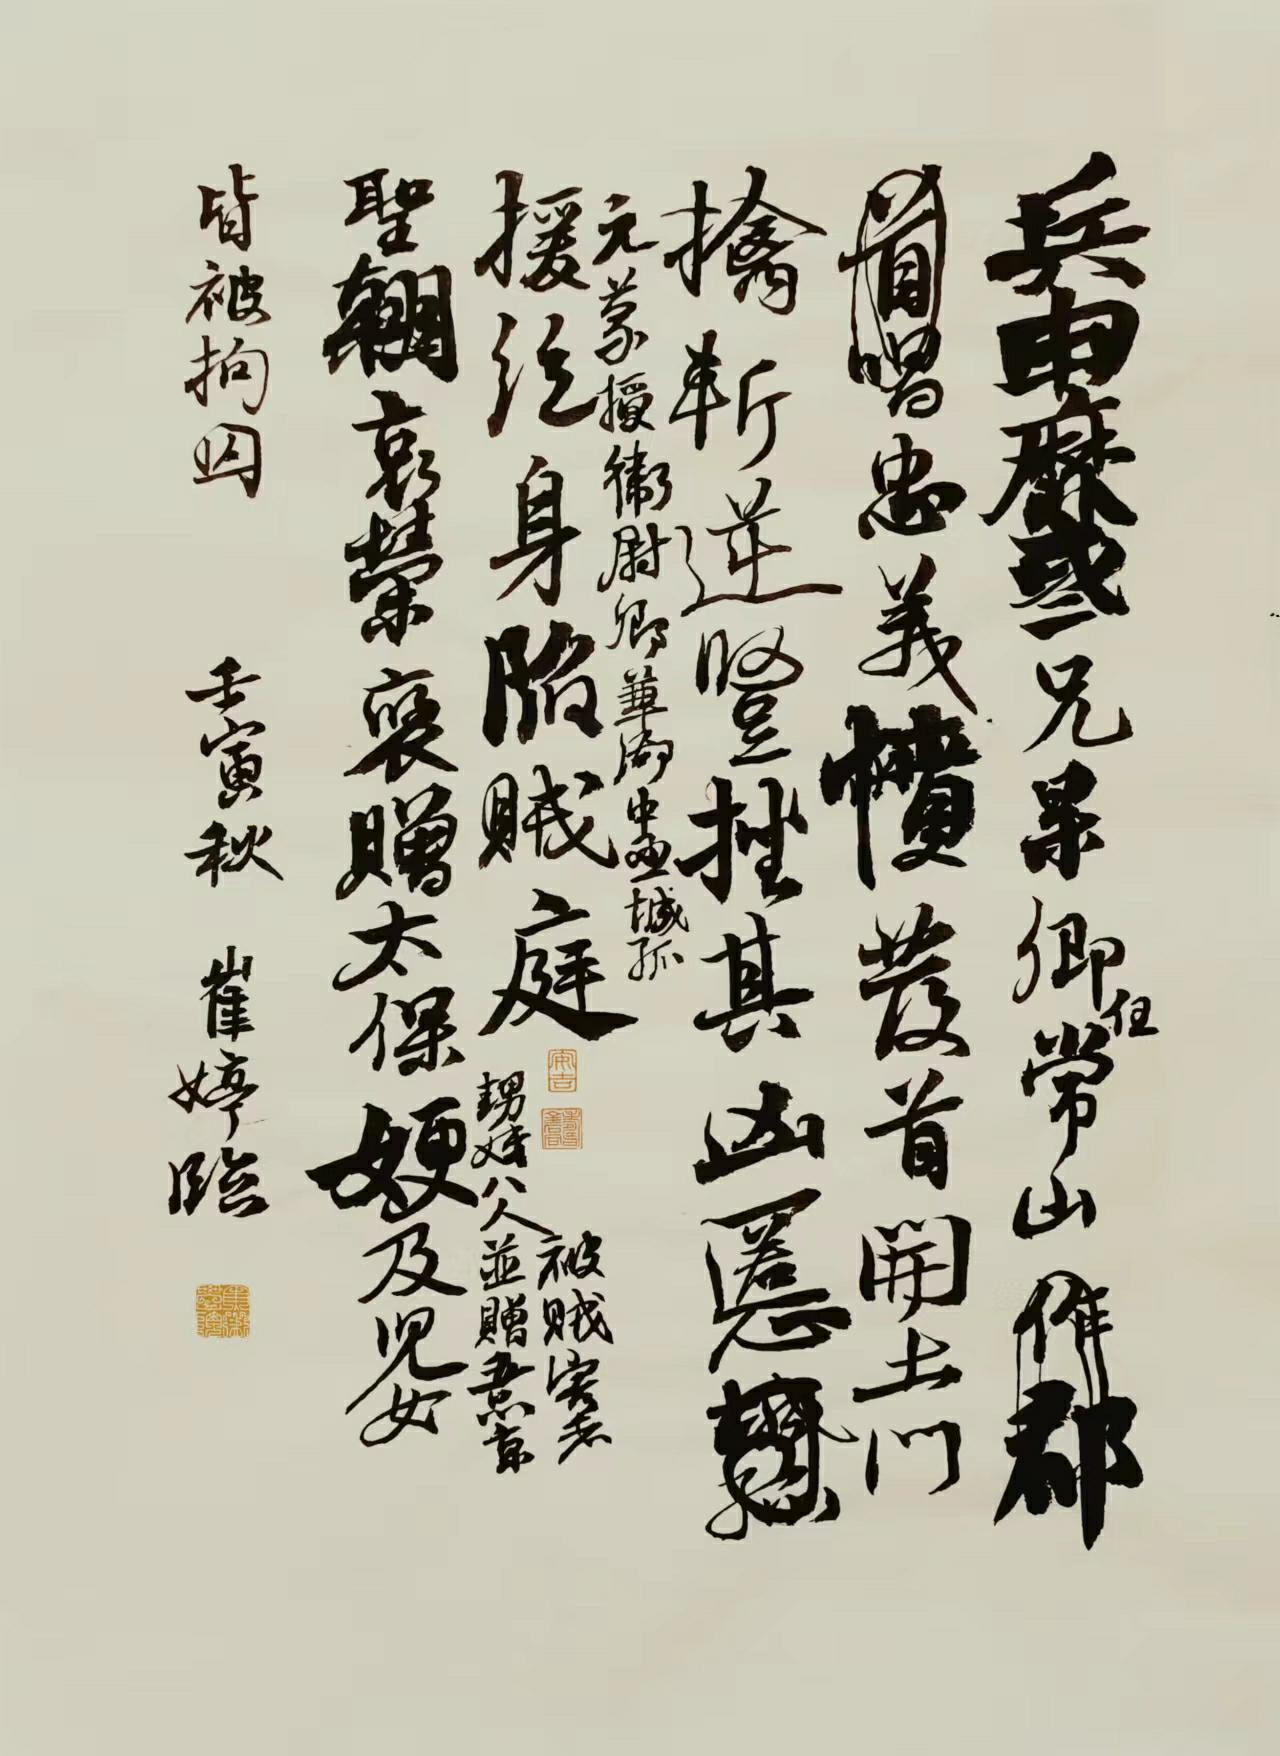 兵 兄杲卿任常山作郡
首唱忠義憤發首開土門
擒斬逆豎挫其凶慝
元蒙授衛尉卿兼御中丞城孤
援絕身陷賊庭
被賊害者
甥姪八人並贈 京
聖朝哀榮褒贈太保嫂及兒女
皆被拘囚 壬寅秋 崔婷臨
安吉